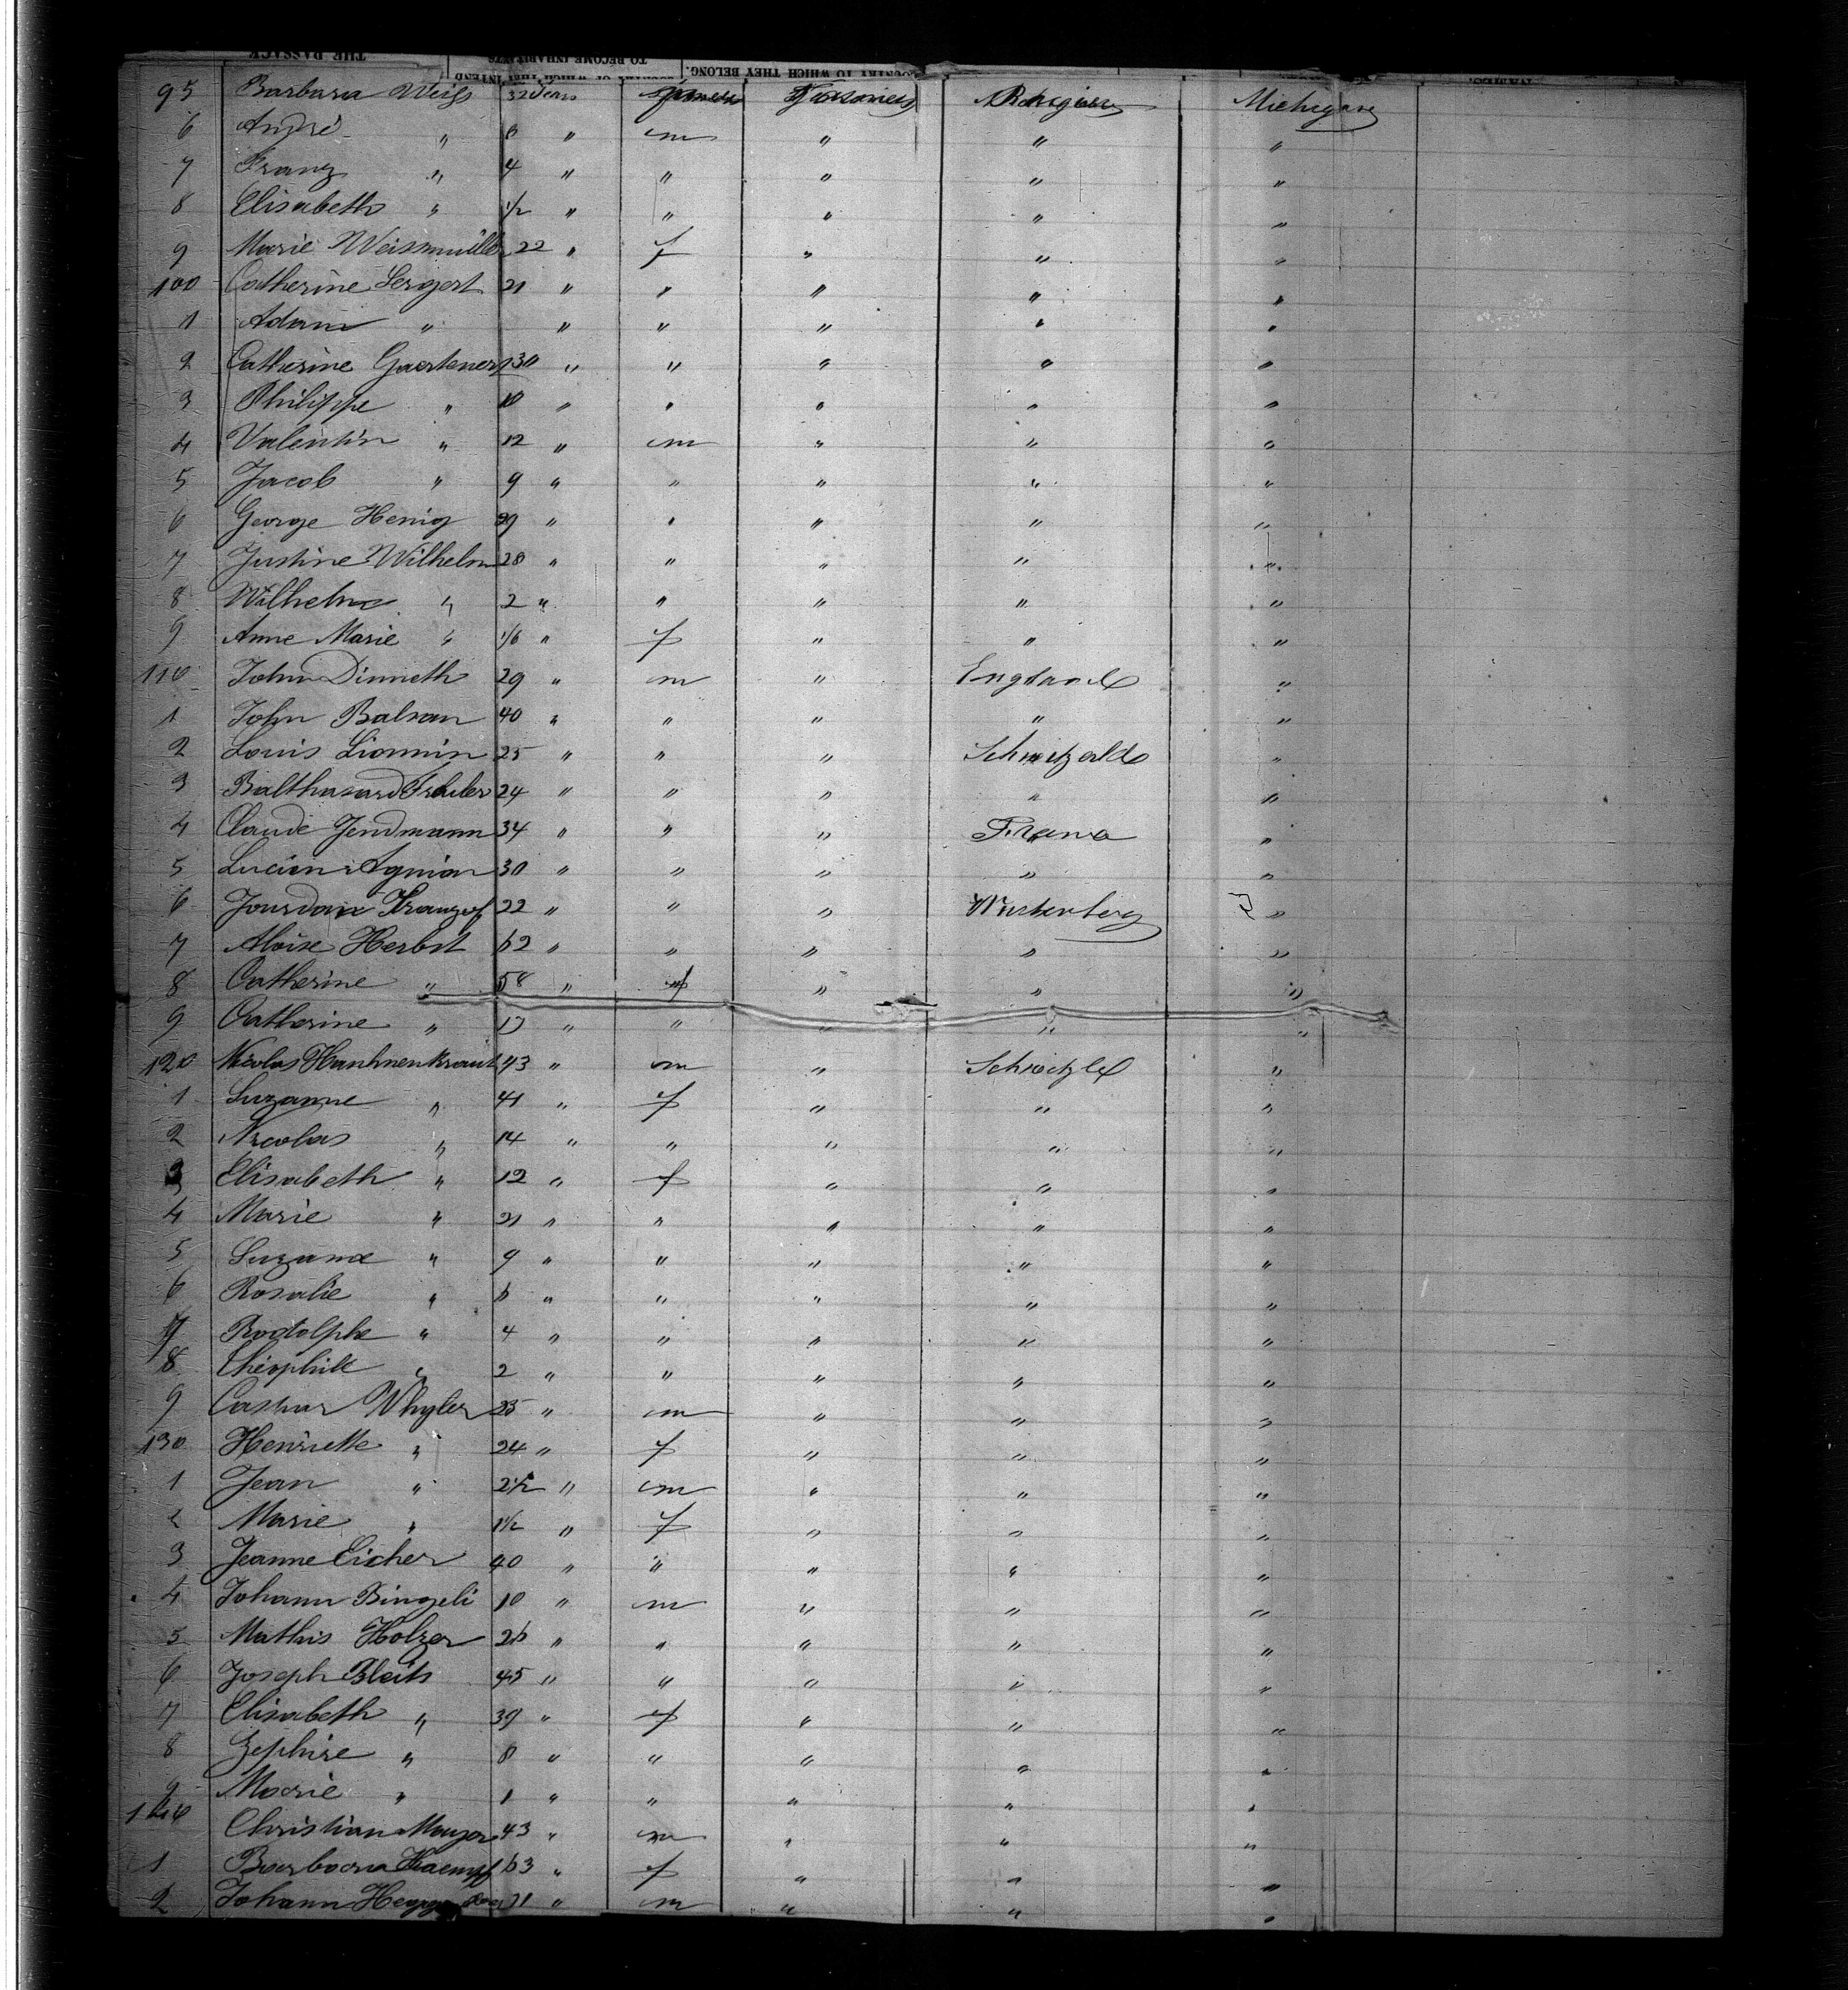 THE PASSAGE TO BECOME INHABITANTS COUNTRY OF WHICH THEY INTEND COUNTRY TO WHICH THEY BELONG. NAMES.
95 Barbara Weiss 32 Years Farmers Michigan
6 André " 6 " m " " "
7 Franz " 4 " " " " "
8 Elisabeth " 1/2 " " " " "
9 Marie Weissmüller 22 " f " " "
100 Catherine Sergert 21 " " " " "
1 Adam " " " " " "
2 Catherine Gaertener 30 " " " " "
3 Philippe " 10 " " " " "
4 Valentin " 12 " m " " "
5 Jacob " 9 " " " " "
6 George Henig 29 " " " " "
7 Justine Wilhelm 28 " " " " "
8 Wilhelm " 2 " " " " "
9 Anne Marie " 1/6 " f " " "
110 John Dinneth 29 " m " England "
1 John Balsan 40 " " " " "
2 Louis Lionnin 25 " " " "
3 Balthasard 24 " " " " "
4 Claude Jendmann 34 " " " "
5 Lucien Agnian 30 " " " " "
6 Jourdan 22 " " " Wurtenberg "
7 Aloise Herbst 62 " " " " "
8 Catherine " 58 " f " " "
9 Catherine " 17 " " " " "
120 Nicolas Hanhnenkraut 43 " m " "
1 Suzanne " 41 " f " " "
2 Nicolas " 14 " " " " "
3 Elisabeth " 12 " f " " "
4 Marie " 21 " " " " "
5 Suzanne " 9 " " " " "
6 Rosalie " 6 " " " " "
7 Rodolphe " 4 " " " " "
8 Théophile " 2 " " " " "
9 Caspar Whyler 25 " m " " "
130 Henriette " 24 " f " " "
1 Jean " 2 1/2 " m " " "
2 Marie " 1 1/2 " f " " "
3 Jeanne Eicher 40 " " " " "
4 Johann Bingeli 10 " m " " "
5 Mathis Holzer 26 " " " " "
6 Joseph Bleits 45 " " " " "
7 Elisabeth " 39 " f " " "
8 Zephire " 8 " " " " "
9 Marie " 1 " " " " "
140 Christian Mayor 43 " m " " "
1 Barbara Kaempf 63 " f " " "
2 Johann 21 " m " " "